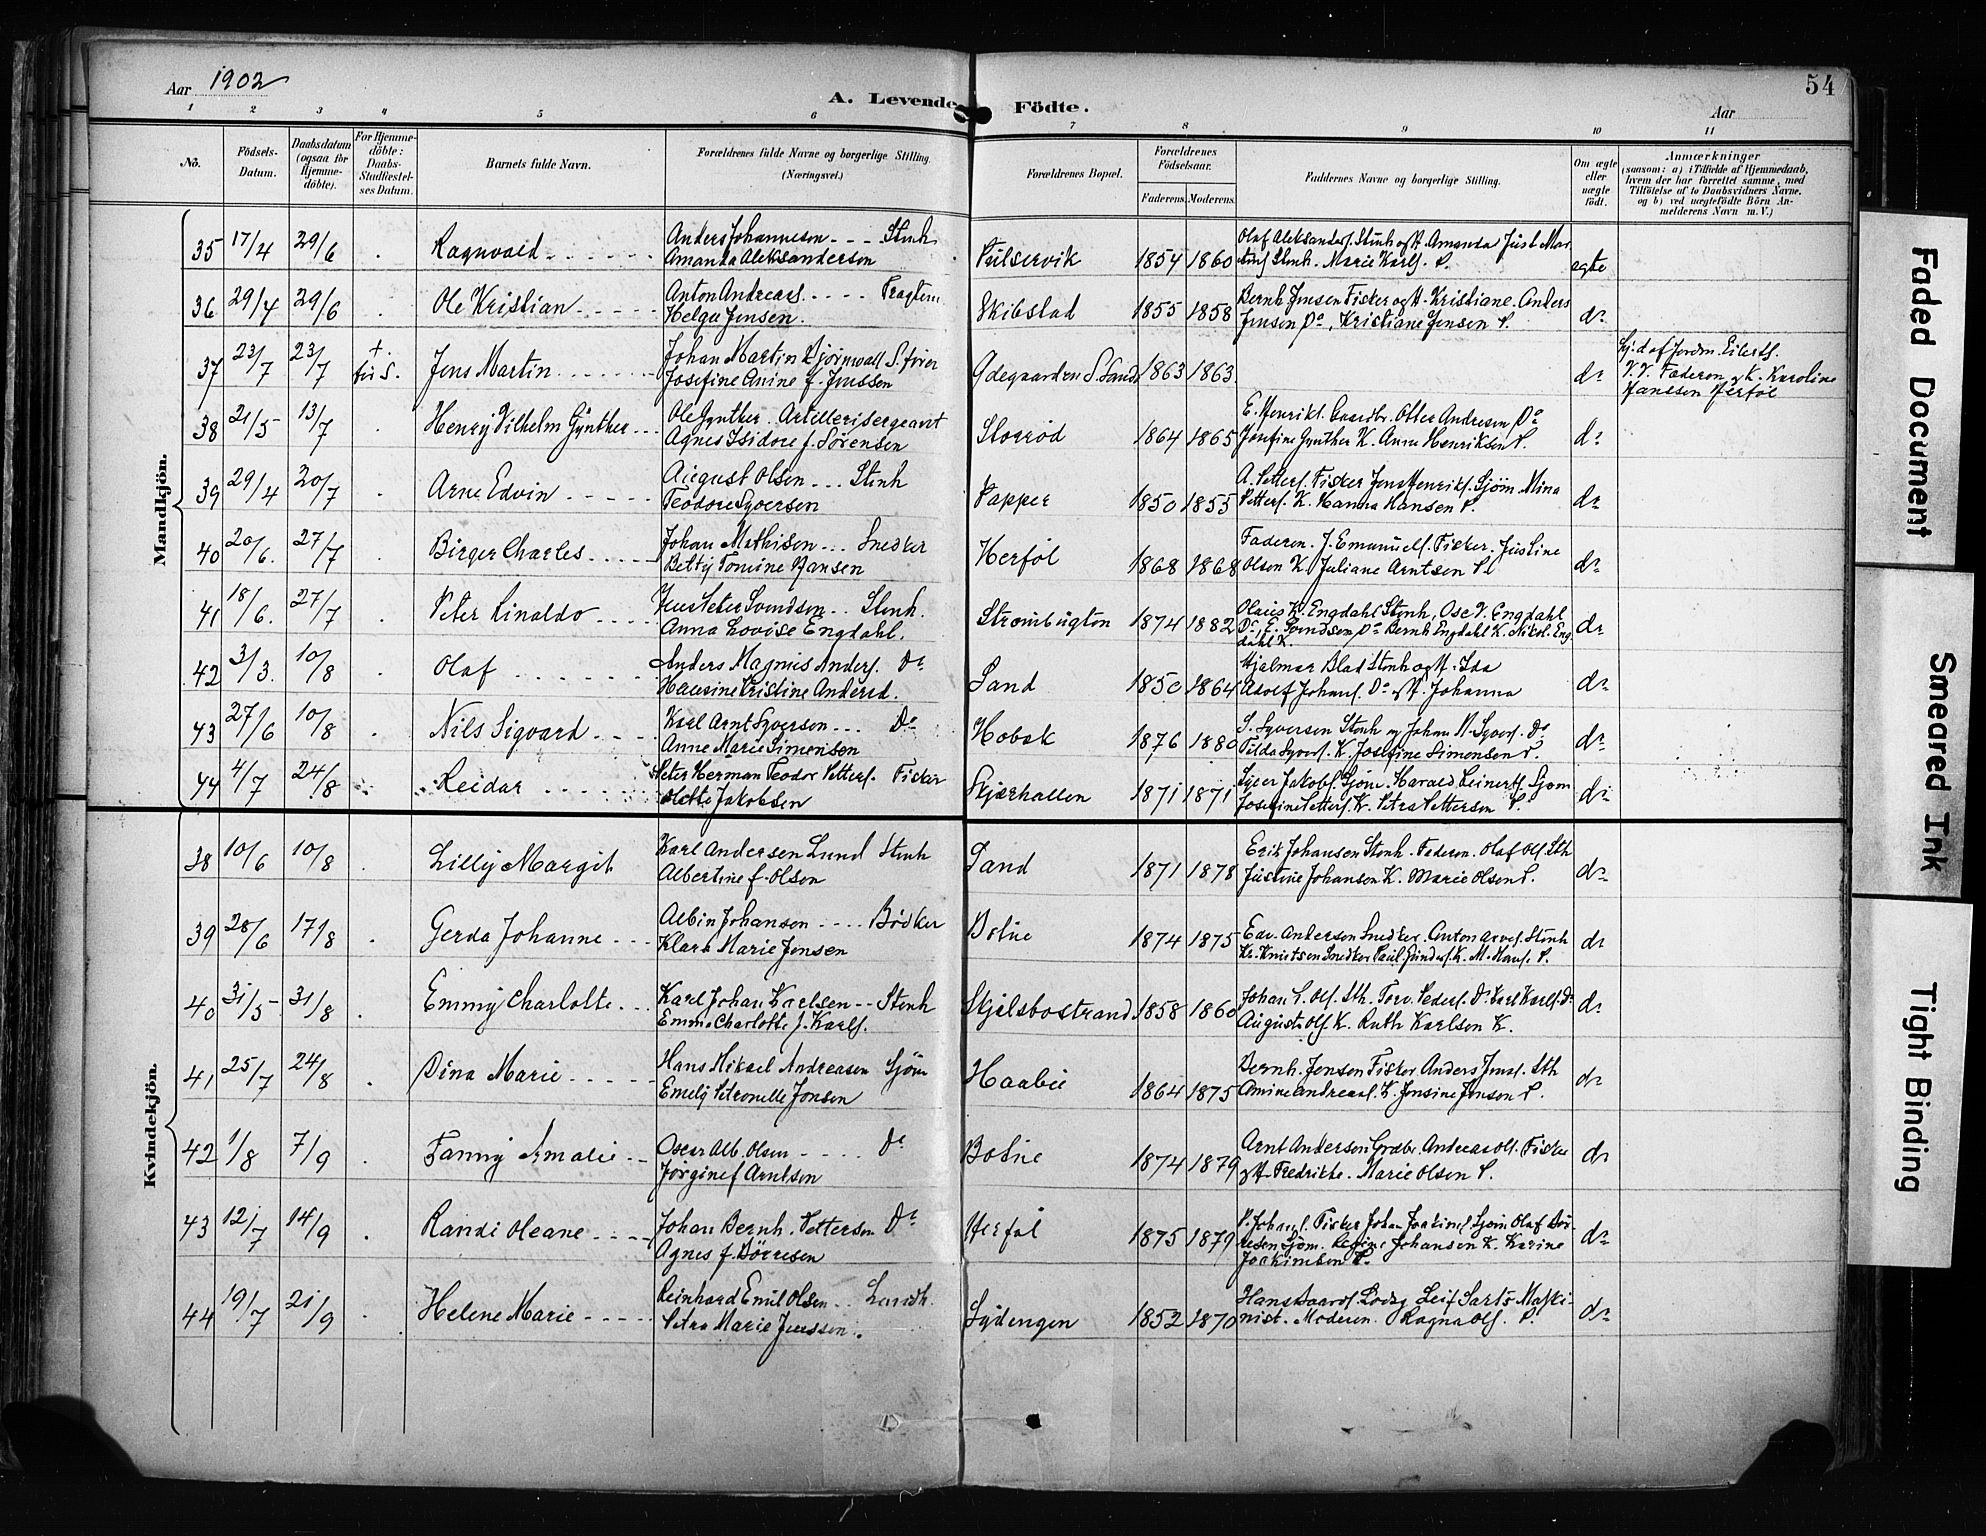 Aar 1902
A. Levende Födte.
Aar
54
1 2 3 4 5 6 7 8 9 10 11
No.
Födsels-Datum.
Daabsdatum (ogsaa för Hjemme-döbte).
For Hjemme-döbte: Daabs-Stadfæstel-ses Datum.
Barnets fulde Navn.
Forældrenes fulde Navne og borgerlige Stilling. (Næringsvei.)
Forældrenes Bopæl.
Forældrenes Födselsaar.
Faderens. Moderens.
Faddernes Navne og borgerlige Stilling.
Om ægte eller uægte födt.
Anmærkninger
(saasom: a) i Tilfælde af Hjemmedaab, hvem der har forrettet samme, med Tilföielse af to Daabsvidners Navne. og b) ved uægtefödte Börn An-melderens Navn m. V.)
Mandkjön.
35 17/4 29/6 Ragnvald Anders Johannesen Stenh
Amanda Aleksandersen
1854 1860
Marie Karls. P. ægte
36 29/4 29/6 Ole Kristian Anton Andreas. Fragtem
Helga Jensen. Skibstad 1855 1858 Bernh. Jensen Fisker og H. Kristiane. Anders
Jensen Do, Kristiane Jensen P. do
37 23/7 23/7 + Jens Martin Johan Martin Bjørnvall
Josefine Anine f. Jenssen Ødegaarden S. Sandø 1863 1863 do
Faderen K. Karoline
Hanssen Herføl
38 21/5 13/7 Henry Vilhelm Gynther Ole Gynther. Artillerisergeant
Agnes Isidore f. Sørensen Storrød 1864 1865 E. Henriks. Gaardbr. Otter Andersen Do
Josefine Gynther K. Anna Henriksen P. do
39 29/4 20/7 Arne Edvin August Olsen Stenh
Teodore Syversen Papper 1850 1855 A. Petters. Fisker Jens Henriks. Sjøm. Mina
Petters. K. Hanna Hansen P. do
40 20/6. 27/7 Birger Charles Johan Mathisen Snedker
Betty Tomine Hansen Herføl 1868 1868 Faderen. J. Emanuels. Fisker. Justine
Olsen K. Juliane Arntsen P. do
41 18/6. 27/7 Peter Rinaldo Jens Peter Svendsen Stenh.
Anna Lovise Engdahl. 1874 1882 Olaus K. Engdahl Stenh. Osc. V. Engdahl
Do, E. Svendsen Do Bernh Engdahl K. Nikol. Eng
dahl K. do
42 3/3. 10/8 Olaf Anders Magnus Anders. Do
Hansine Kristine Andersd. Sand 1850 1864 Hjalmar Blad Stenh og H. Ida
Adolf Johans. Do og H. Johanna do
43 27/6 10/8 Nils Sigvard Karl Arnt Syversen Do
Anne Marie Simensen Hobæk 1876 1880 S. Syversen Stenh og Johan N. Syvers. Do
Tilda Syvers. K. Josefine Simensen P. do
44 4/7 24/8 Reidar Peter Herman Teodor Petters. Fisker
Olette Jakobsen Skjærhallen 1871 1871 Syver Jakobs. Sjøm. Harald Leinerts. Sjøm
Josefine Petters. K. Petra Pettersen P. do
Kvindekjön.
38 10/6 10/8 Lilly Margit Karl Andersen Lund Stenh
Albertine f. Olsen Sand 1871 1878 Erik Johansen Stenh. Faderen. Olaf Ols. Sth
Justine Johansen K. Marie Olsen P. do
39 28/6 17/8 Gerda Johanne Albin Johansen Bødker
Klara Marie Jensen Botne 1874 1875 Edv. Andersen Snedker. Anton Arves. Stenh
Kr. Knutsen Snedker K. M. Hans. P. do
40 31/5 31/8 Emmy Charlotte Karl Johan Karlsen Stenh
Emma Charlotte J. Karls. Skjelsbostrand 1858 1860 Johan P. Ols. Sth. Torv. Peders. Do Karl Karls. Do
Augusta Ols. K. Ruth Karlsen K. do
41 25/7 24/8 Dina Marie Hans Mikael Andreasen Sjøm
Emely Petronelle Jensen Haabu 1864 1875 Bernh. Jensen Fisker Anders Jens. Sth
Amine Andreas. K. Jensine Jensen P. do
42 1/8 7/9 Fanny Amalie Oscar Alb. Olsen Do
Jørgine f Arntsen Botne 1874 1879 Arnt Andersen Andreas Ols. Fisker
og H. Fredrikke. Marie Olsen P. do
43 12/7 14/9 Randi Oleane Johan Bernh. Pettersen Do
Agnes f. Børresen Herføl 1875 1879 P. Johans. Fisker Johan Joakims. Sjøm Olaf Bør-
resen Sjøm. Regine Johansen K. Karine
Joakimsen P. do
44 19/7 21/9 Helene Marie Reinhard Emil Olsen Landh.
Petra Marie Jenssen Lydengen 1852 1870 Lods og Leif Sarts Maski-
nist. Moderen. Ragna Ols. P. do
Faded Document
Smeared Ink
Tight Binding